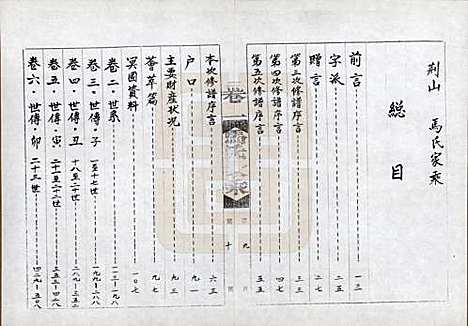 荆山 馬氏家乘
總目
前言 一三
字派 二五
贈言 二七
第三次修譜序言 三三
第四次修譜序言 四七
第五次修譜序言 五五
本次修譜序言 六三
户口 九一
主要財産狀况 九三
薈萃篇 九七
冥國資料 一〇七
卷二·世系 一一三-一九八
卷三·世傳·子 一至十七世 一九九-二八八
卷四·世傳·丑 十八至二十世 二八九-三五二
卷五·世傳·寅 二十一至二十二世 三五三-四二八
卷六·世傳·卯 二十三世 四二九-五〇八
卷一
九
十